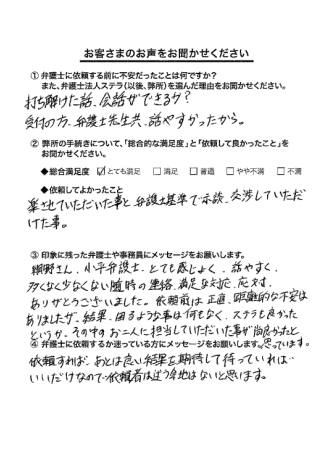 お客さまのお声をお聞かせください
① 弁護士に依頼する前に不安だったことは何ですか？
また、弁護士法人ステラ（以後、弊所）を選んだ理由をお聞かせください。
打ち解けた話、会話ができるか？
受付の方、弁護士先生共、話やすかったから。
② 弊所の手続きについて、「総合的な満足度」と「依頼して良かったこと」を
お聞かせください。
◆総合満足度 ☑とても満足 □満足 □普通 □やや不満 □不満
◆依頼してよかったこと
楽させていただいた事と弁護士基準で示談、交渉していただ
けた事。
③ 印象に残った弁護士や事務員にメッセージをお願いします。
細野さん、小平弁護士、とても感じよく、話やすく、
多くなく少なくない随時の連絡、満足な対応、応対、
ありがとうございました。依頼前は正直、距離的な不安は
ありましたが、結果、困るような事は何もなく、ステラも良かった
というか、その中のお二人に担当していただいた事が尚良かったと
思っています。
④ 弁護士に依頼するか迷っている方にメッセージをお願いします。
依頼すれば、あとは良い結果を期待して待っていれば
いいだけなので、依頼者は迷う余地はないと思います。